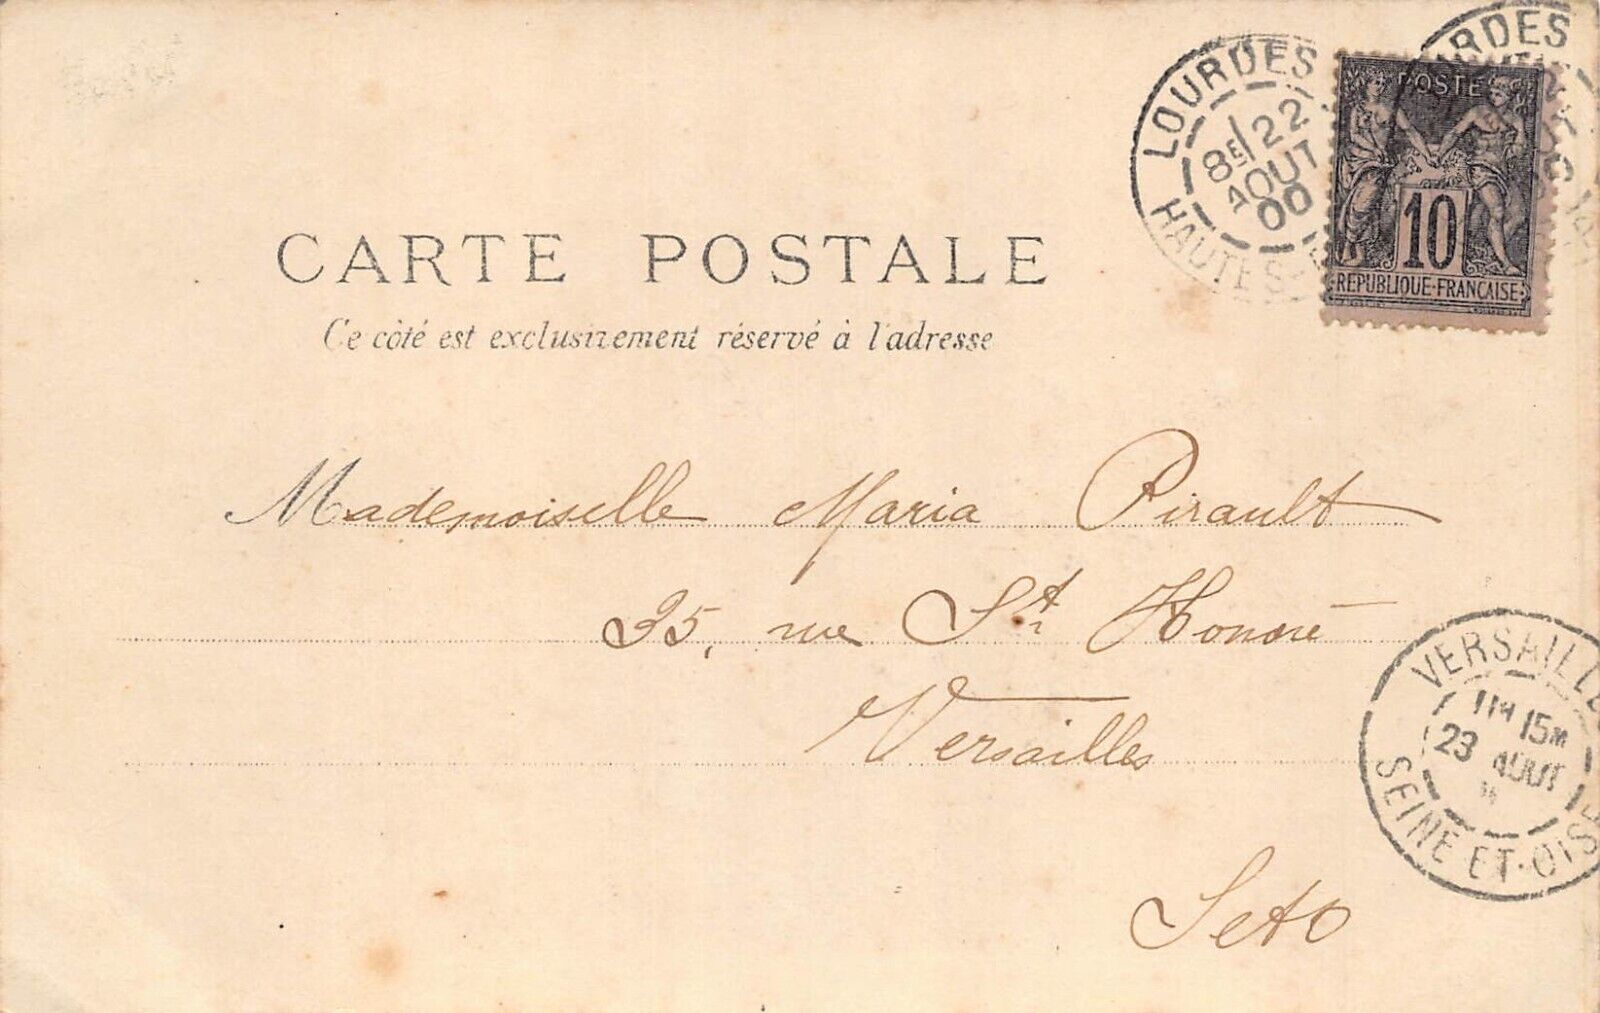 CARTE POSTALE
Ce côté est exclusivement réservé à l'adresse
LOURDES
8E/22
AOUT
00
HAUTES
RDES
POSTES
10
REPUBLIQUE FRANÇAISE
Mademoiselle Maria Pirault
35, rue St Honoré
Versailles
S et O
VERSAILLES
11H 15M
23 AOUT
SEINE-ET-OISE